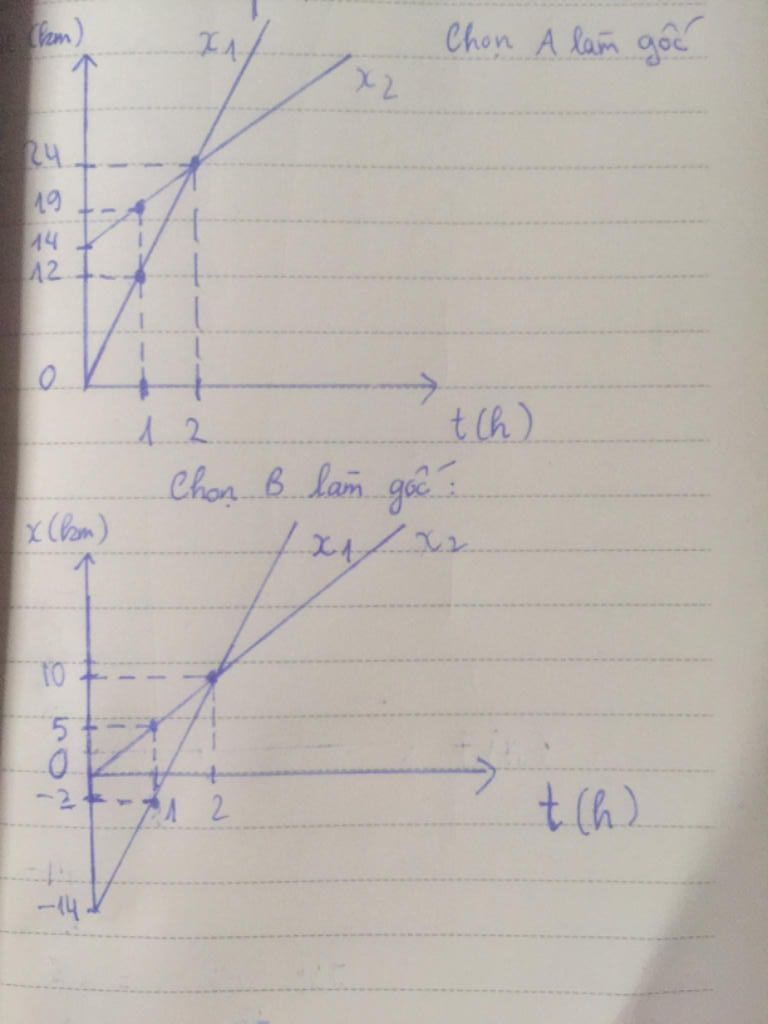 x (km)
x1
Chọn A làm gốc
x2
24
19
14
12
0
1 2
t (h)
Chọn B làm gốc:
x (km)
x1
x2
10
5
0
-2
1 2
t (h)
-14